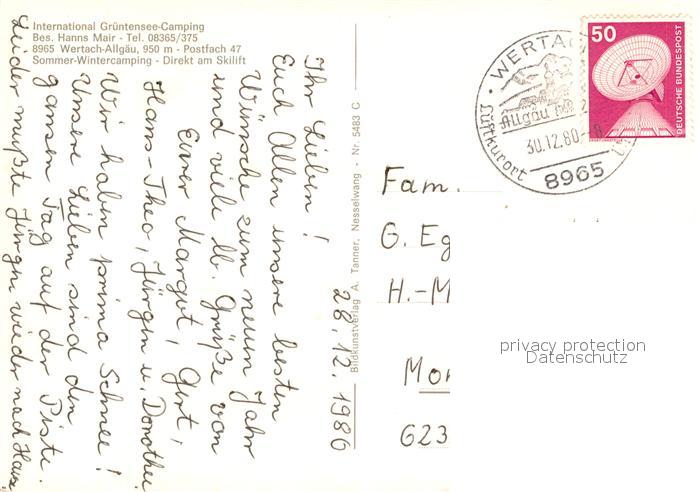 International Grüntensee-Camping
Bes. Hanns Mair - Tel. 08365/375
8965 Wertach-Allgäu, 950 m - Postfach 47
Sommer-Wintercamping - Direkt am Skilift
28.12.1986
Ihr Lieben!
Euch Allen unsere besten
Wünsche zum neuen Jahr
und viele lb. Grüße von
Eurer Margut, Gert,
Hans-Theo, Jürgen u. Dorothee
Wir haben prima Schnee!
Unsere Lieben sind den
ganzen Tag auf der Piste.
Leider mußte Jürgen wieder nach Haus.
Bildkunstverlag A. Tanner, Nesselwang · Nr. 5483 C
WERTACH
Allgäu
30.12.80-8
Luftkurort
8965
50
DEUTSCHE BUNDESPOST
Fam.
G. Eg
H.-M
Mor
623
privacy protection
Datenschutz